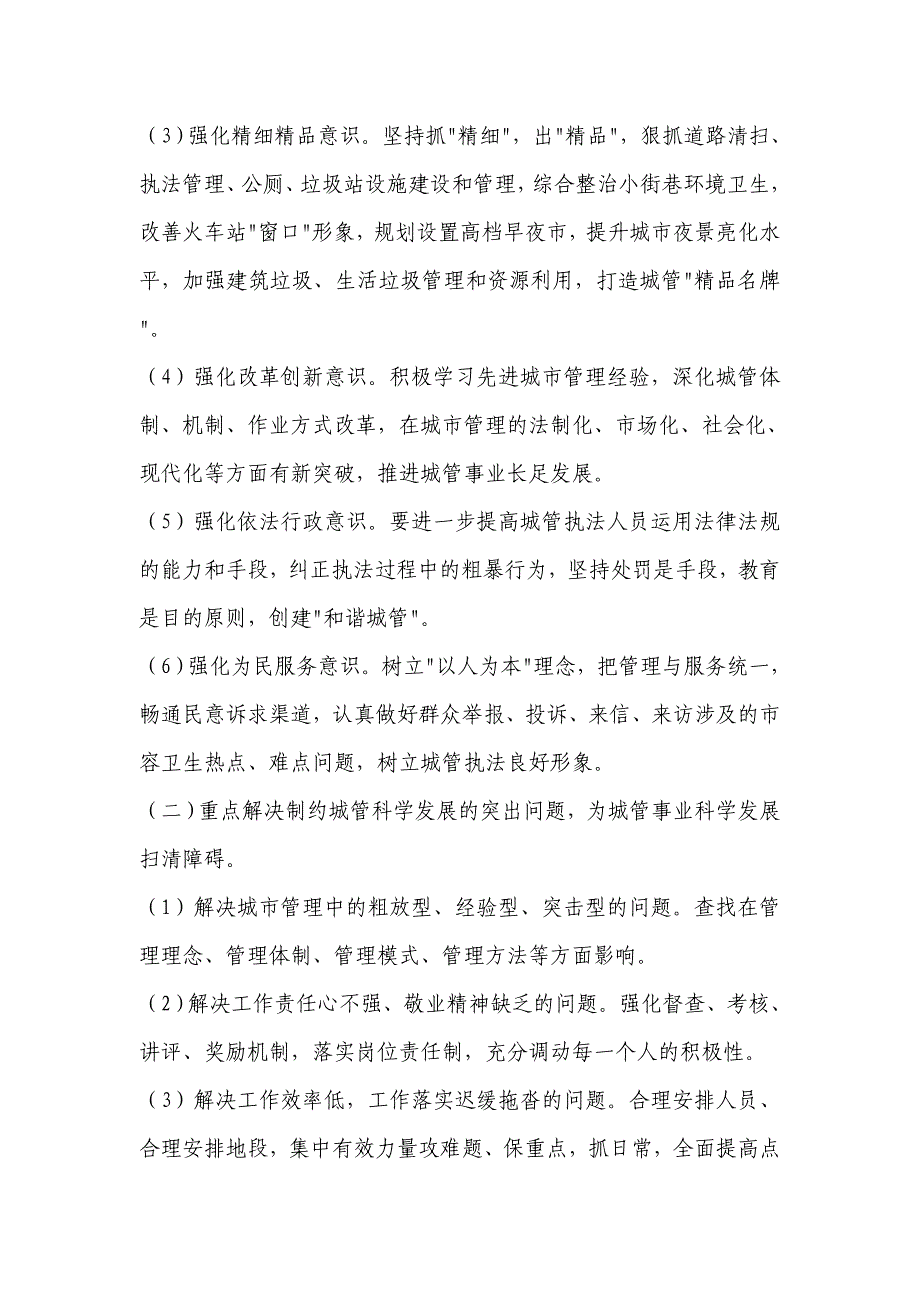 （3）强化精细精品意识。坚持抓"精细"，出"精品"，狠抓道路清扫、
执法管理、公厕、垃圾站设施建设和管理，综合整治小街巷环境卫生，
改善火车站"窗口"形象，规划设置高档早夜市，提升城市夜景亮化水
平，加强建筑垃圾、生活垃圾管理和资源利用，打造城管"精品名牌
"。
（4）强化改革创新意识。积极学习先进城市管理经验，深化城管体
制、机制、作业方式改革，在城市管理的法制化、市场化、社会化、
现代化等方面有新突破，推进城管事业长足发展。
（5）强化依法行政意识。要进一步提高城管执法人员运用法律法规
的能力和手段，纠正执法过程中的粗暴行为，坚持处罚是手段，教育
是目的原则，创建"和谐城管"。
（6）强化为民服务意识。树立"以人为本"理念，把管理与服务统一，
畅通民意诉求渠道，认真做好群众举报、投诉、来信、来访涉及的市
容卫生热点、难点问题，树立城管执法良好形象。
（二）重点解决制约城管科学发展的突出问题，为城管事业科学发展
扫清障碍。
（1）解决城市管理中的粗放型、经验型、突击型的问题。查找在管
理理念、管理体制、管理模式、管理方法等方面影响。
（2）解决工作责任心不强、敬业精神缺乏的问题。强化督查、考核、
讲评、奖励机制，落实岗位责任制，充分调动每一个人的积极性。
（3）解决工作效率低，工作落实迟缓拖沓的问题。合理安排人员、
合理安排地段，集中有效力量攻难题、保重点，抓日常，全面提高点